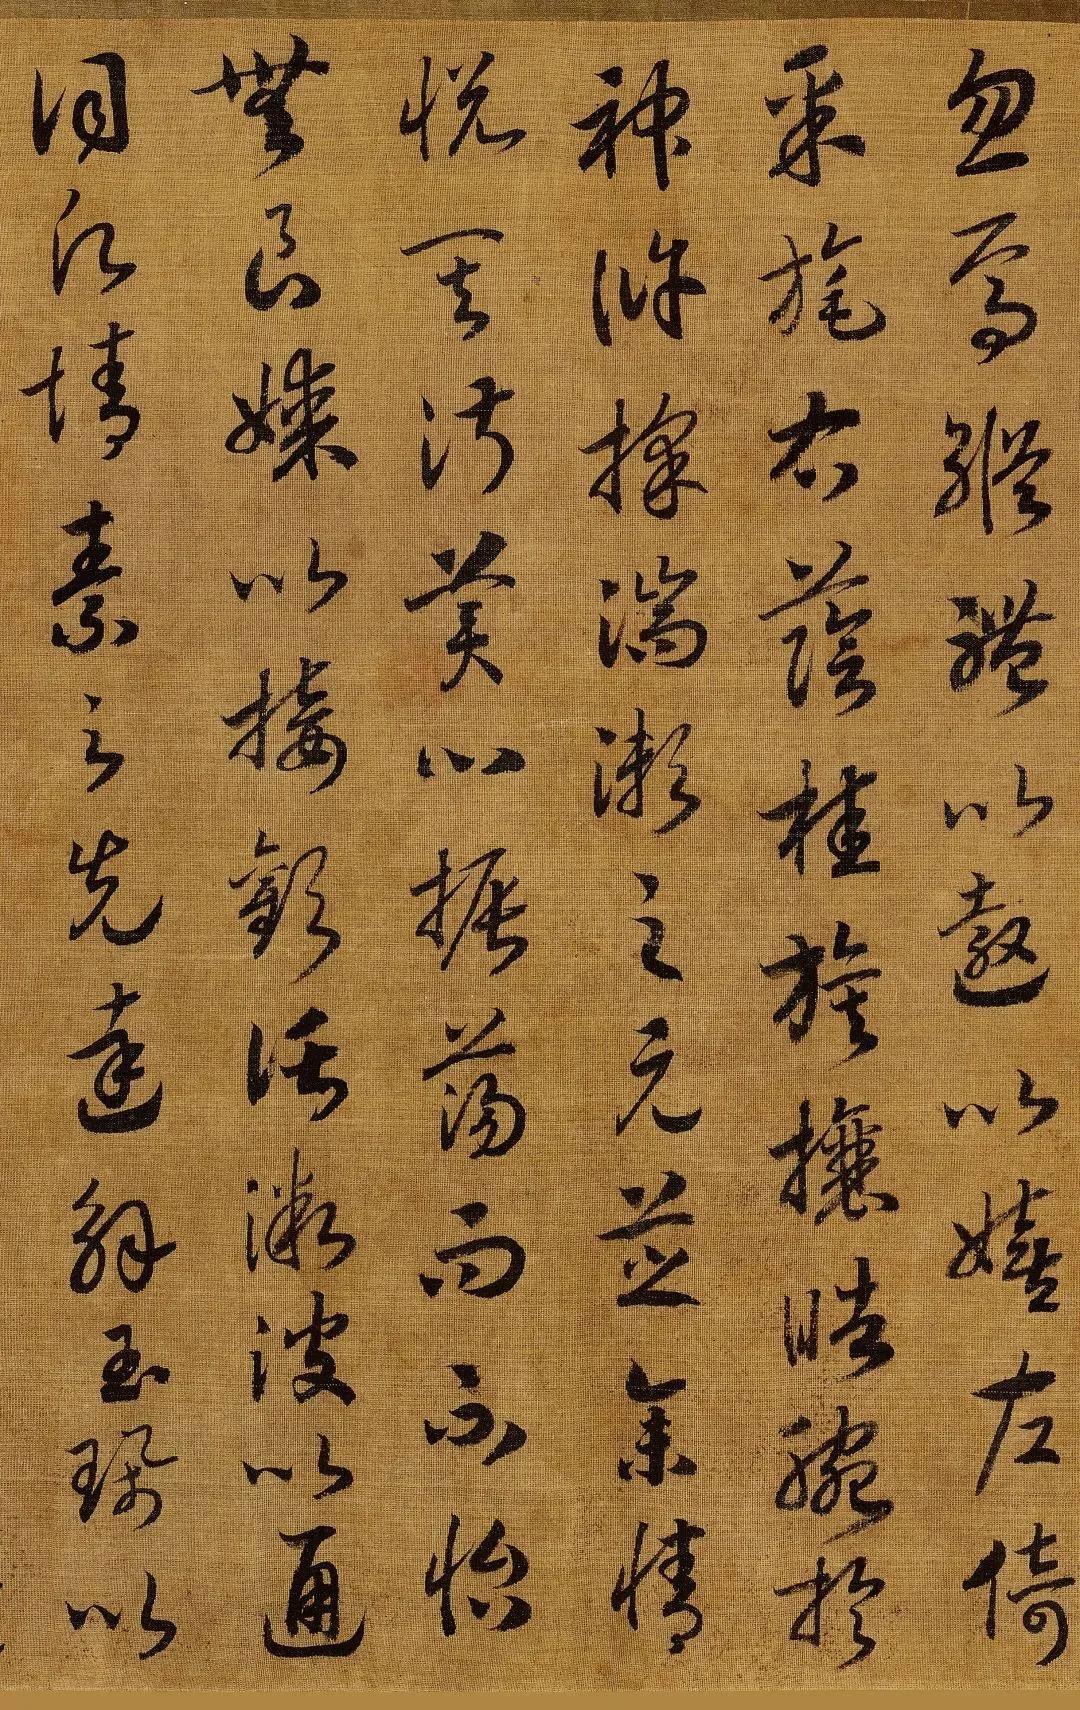 忽焉縱體以遨以嬉左倚
采旄右蔭桂旗攘皓腕於
神滸採湍瀨之元芝余情
悅其淑美心振蕩而不怡
無良媒以接歡託微波以通
詞願情素之先達解玉珮以